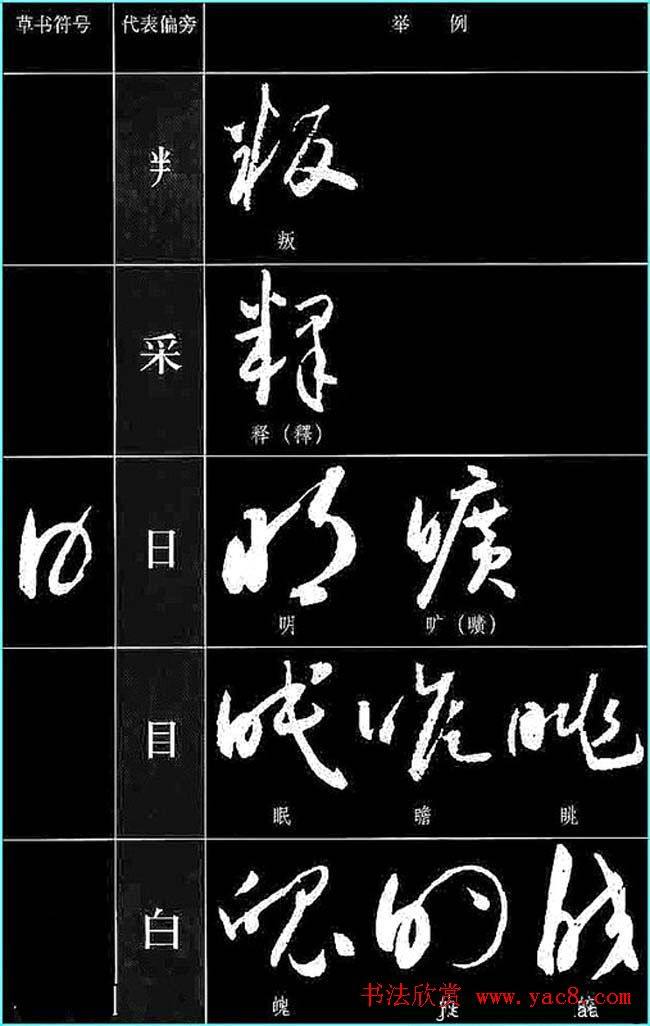 草书符号 代表偏旁 举例
半
叛
釆
释（釋）
日
明 旷（曠）
目
眠 瞻 眺
白
魄
书法欣赏 www.yac8.com